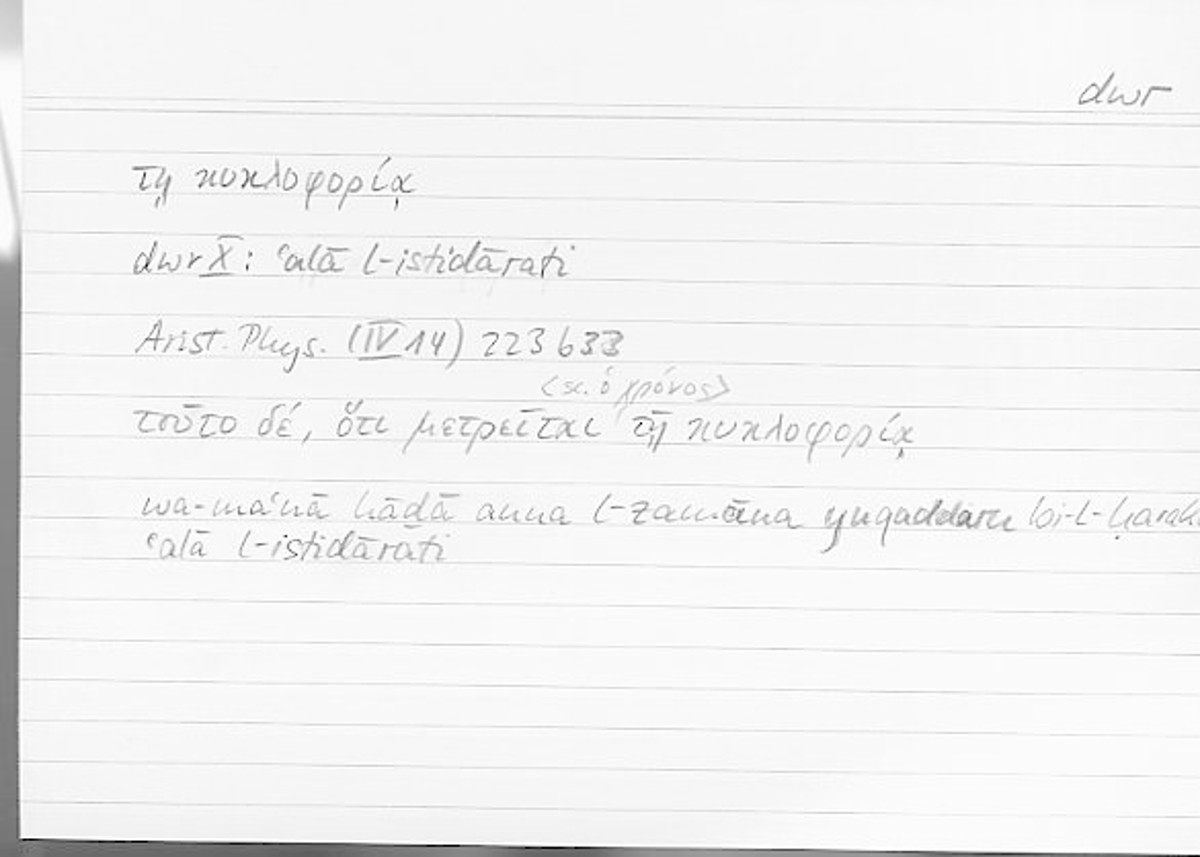 dwr
τῇ κυκλοφορίᾳ
dwr X : ʿalā l-istidārati
Arist. Phys. (IV 14) 223 b 33
<sc. ὁ χρόνος>
τοῦτο δέ, ὅτι μετρεῖται τῇ κυκλοφορίᾳ
wa-maʿnā hāḏā anna l-zamāna yuqaddaru bi-l-ḥarak
ʿalā l-istidārati